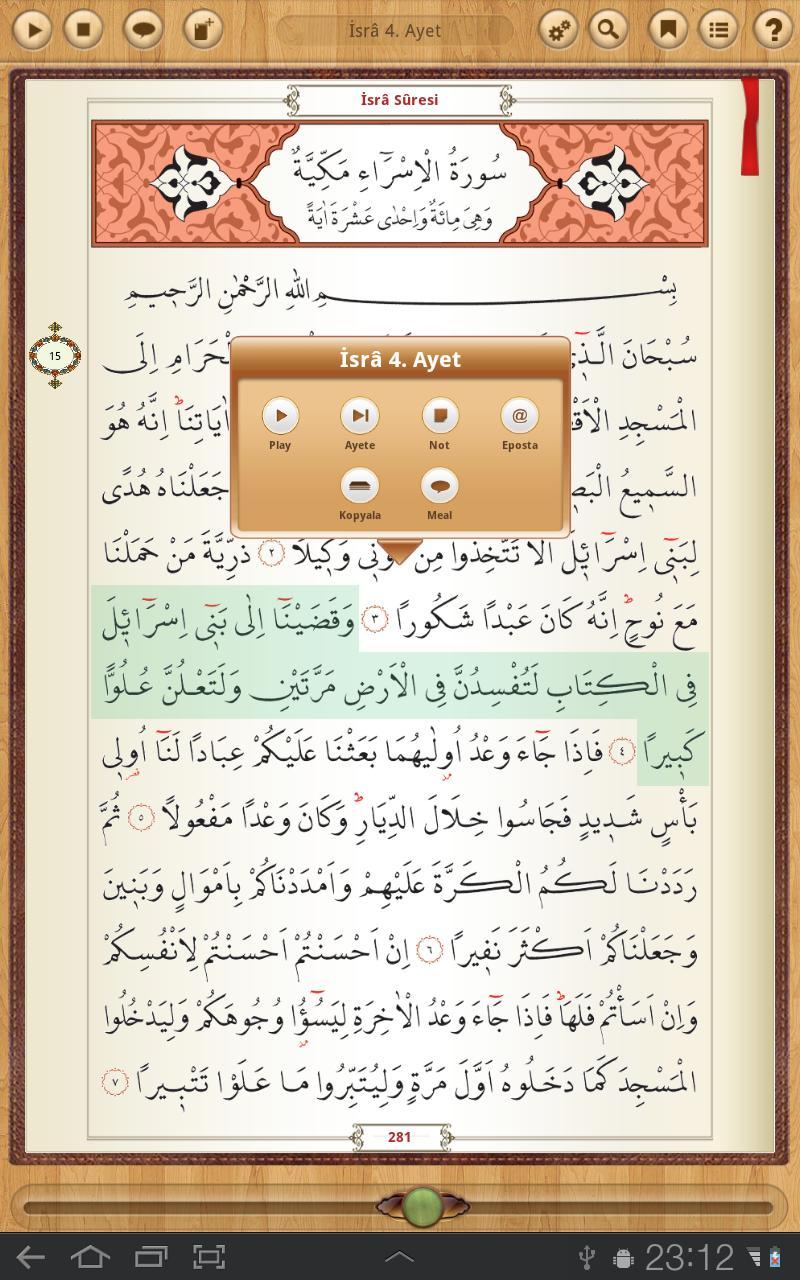 İsrâ 4. Ayet
İsrâ Sûresi
سُورَةُ الْاِسْرَٓاءِ مَكِّيَّةٌ
وَهِيَ مِائَةٌ وَاِحْدٰى عَشْرَةَ اٰيَةً
بِسْمِ اللّٰهِ الرَّحْمٰنِ الرَّحِيمِ
سُبْحَانَ الَّذ۪ٓي الْحَرَامِ اِلَى
15
الْمَسْجِدِ اٰيَاتِنَاۜ اِنَّهُ هُوَ
السَّم۪يعُ جَعَلْنَاهُ هُدًى
İsrâ 4. Ayet
Play
Ayete
Not
Eposta
Kopyala
Meal
لِبَن۪ٓي اِسْرَٓائ۪لَ اَلَّا تَتَّخِذُوا مِنْ وَك۪يلًا ﴿٢﴾ ذُرِّيَّةَ مَنْ حَمَلْنَا
مَعَ نُوحٍۜ اِنَّهُ كَانَ عَبْدًا شَكُورًا ﴿٣﴾ وَقَضَيْنَٓا اِلٰى بَن۪ٓي اِسْرَٓائ۪لَ
فِي الْكِتَابِ لَتُفْسِدُنَّ فِي الْاَرْضِ مَرَّتَيْنِ وَلَتَعْلُنَّ عُلُوًّا
كَب۪يرًا ﴿٤﴾ فَاِذَا جَٓاءَ وَعْدُ اُو۫لٰيهُمَا بَعَثْنَا عَلَيْكُمْ عِبَادًا لَنَٓا اُو۬ل۪ي
بَأْسٍ شَد۪يدٍ فَجَاسُوا خِلَالَ الدِّيَارِۜ وَكَانَ وَعْدًا مَفْعُولًا ﴿٥﴾ ثُمَّ
رَدَدْنَا لَكُمُ الْكَرَّةَ عَلَيْهِمْ وَاَمْدَدْنَاكُمْ بِاَمْوَالٍ وَبَن۪ينَ
وَجَعَلْنَاكُمْ اَكْثَرَ نَف۪يرًا ﴿٦﴾ اِنْ اَحْسَنْتُمْ اَحْسَنْتُمْ لِاَنْفُسِكُمْ
وَاِنْ اَسَأْتُمْ فَلَهَاۜ فَاِذَا جَٓاءَ وَعْدُ الْاٰخِرَةِ لِيَسُٓؤُ۫ا وُجُوهَكُمْ وَلِيَدْخُلُوا
الْمَسْجِدَ كَمَا دَخَلُوهُ اَوَّلَ مَرَّةٍ وَلِيُتَبِّرُوا مَا عَلَوْا تَتْب۪يرًا ﴿٧﴾
281
23:12